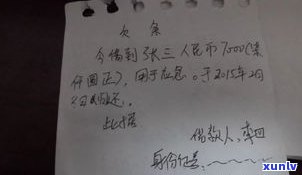 欠条
今借到张三人民币7000(柒
仟圆正),用于应急。于2015年2月
日或归还。
此据
借款人:李四
身份证号:
xuniv
www.xunlv.cn